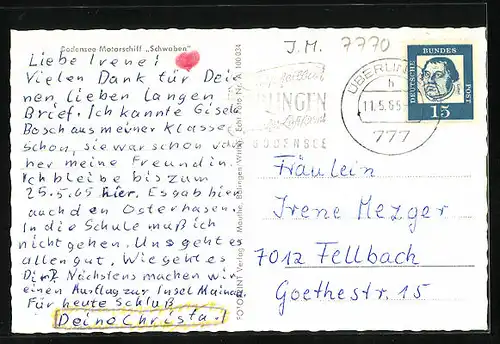 Bodensee Motorschiff „Schwaben“
Liebe Irene!
Vielen Dank für Dei-
nen, lieben Langen
Brief. Ich kannte Gisela
Bosch aus meiner Klasse
Schon, sie war schon vor-
her meine Freundin.
Ich bleibe bis zum
25.5.65 hier. Es gab hier
auch den Osterhasen.
In die Schule muß ich
nicht gehen. Uns geht es
allen gut. Wie geht es
Dir? Nächstens machen wir
einen Ausflug zur Insel Mainau.
Für heute Schluß
Deine Christa.
J.M. 7770
LINGEN
BODENSEE
ÜBERLIN
h
11.5.65
777
DEUTSCHE
BUNDES
POST
15
Fräulein
Irene Mezger
7012 Fellbach
Goethestr. 15